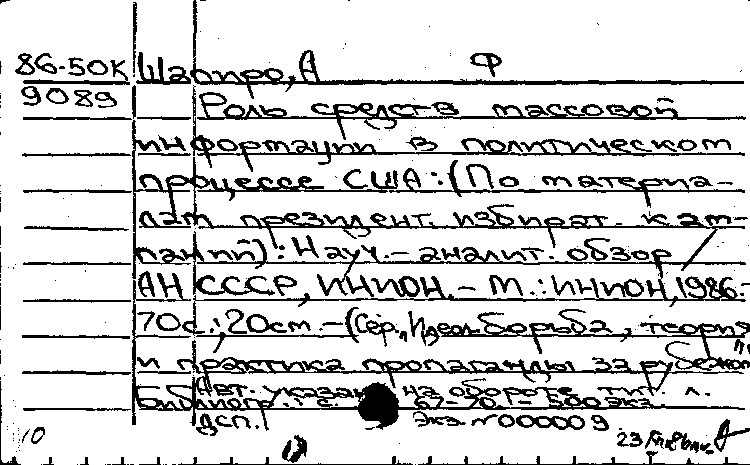 86-50К Шапиро, А Ф
9089 Роль средств массовой
информации в политическом
процессе США: (По материа-
лам президент. избират. кам-
паний): Науч.-аналит. обзор /
АН СССР, ИНИОН. - М.: ИНИОН, 1986.-
70с.; 20см.-(Сер. "Идеол. борьба, теория
и практика пропаганды за рубежом")
Авт. указан на обороте тит. л.
Библиогр.: с. 67-70. - 500 экз.
ДСП. Экз. N000009
10